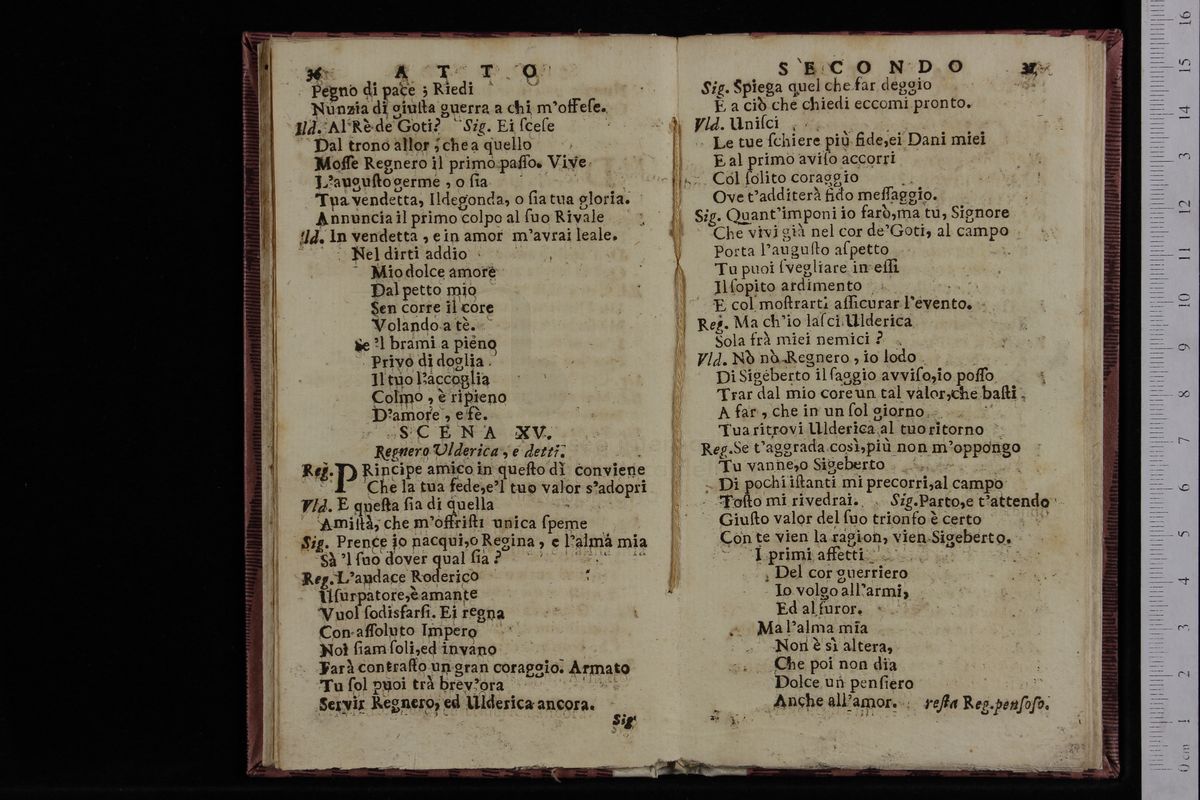 36 A T T O
Pegno di pace ; Riedi
Nunzia di giuſta guerra a chi m'offeſe.
Ild. Al Rè de Goti? Sig. Ei ſceſe
Dal trono allor ; che a quello
Moſſe Regnero il primo paſſo. Vive
L'auguſto germe , o ſia
Tua vendetta, Ildegonda, o ſia tua gloria.
Annuncia il primo colpo al ſuo Rivale
Ild. In vendetta , e in amor m'avrai leale.
Nel dirti addio
Mio dolce amore
Dal petto mio
Sen corre il core
Volando a tè.
Se 'l brami a pieno
Privo di doglia
Il tuo l'accoglia
Colmo , è ripieno
D'amore , e fè.
S C E N A XV.
Regnero Vlderica , e detti.
Reg. PRincipe amico in queſto dì conviene
Che la tua fede,e'l tuo valor s'adopri
Vld. E queſta ſia di quella
Amiſtà, che m'offriſti unica ſpeme
Sig. Prence io nacqui,o Regina , e l'alma mia
Sà 'l ſuo dover qual ſia ?
Reg. L'audace Roderico
Uſurpatore,è amante
Vuol ſodisfarſi. Ei regna
Con aſſoluto Impero
Noi ſiam ſoli,ed invano
Farà contraſto un gran coraggio. Armato
Tu ſol puoi trà brev'ora
Servir Regnero, ed Ulderica ancora.
Sig
S E C O N D O 37
Sig. Spiega quel che far deggio
E a ciò che chiedi eccomi pronto.
Vld. Uniſci
Le tue ſchiere più fide,ei Dani miei
E al primo aviſo accorri
Col ſolito coraggio
Ove t'additerà fido meſſaggio.
Sig. Quant'imponi io farò,ma tu, Signore
Che vivi già nel cor de'Goti, al campo
Porta l'auguſto aſpetto
Tu puoi ſvegliare in eſſi
Il ſopito ardimento
E col moſtrarti aſſicurar l'evento.
Reg. Ma ch'io laſci Ulderica
Sola frà miei nemici ?
Vld. Nò nò Regnero , io lodo
Di Sigeberto il ſaggio avviſo,io poſſo
Trar dal mio core un tal valor,che baſti
A far , che in un ſol giorno
Tua ritrovi Ulderica al tuo ritorno
Reg.Se t'aggrada così,più non m'oppongo
Tu vanne,o Sigeberto
Di pochi iſtanti mi precorri,al campo
Toſto mi rivedrai. Sig.Parto,e t'attendo
Giuſto valor del ſuo trionfo è certo
Con te vien la ragion, vien Sigeberto.
I primi affetti
Del cor guerriero
Io volgo all'armi,
Ed al furor.
Ma l'alma mia
Non è sì altera,
Che poi non dia
Dolce un penſiero
Anche all'amor. reſta Reg.penſoſo.